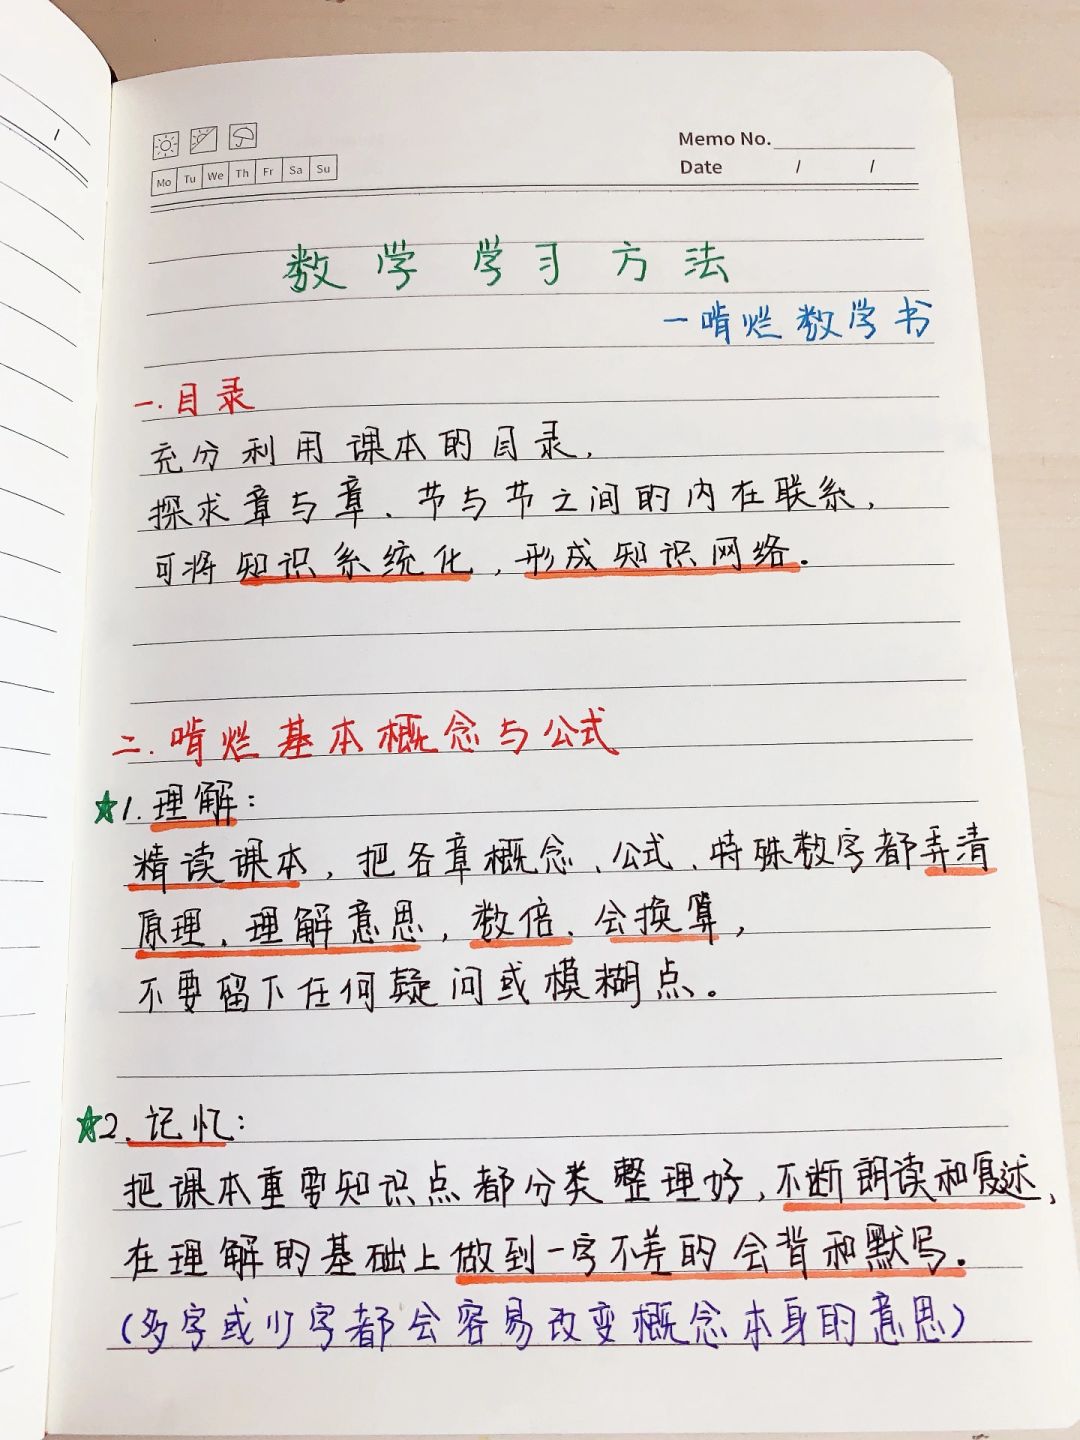 Memo No.
Mo Tu We Th Fr Sa Su
Date / /
数学学习方法
—啃烂数学书
一.目录
充分利用课本的目录,
探求章与章、节与节之间的内在联系,
可将知识系统化,形成知识网络.
二.啃烂基本概念与公式
★1.理解:
精读课本,把各章概念、公式、特殊数字都弄清
原理、理解意思,数倍、会换算,
不要留下任何疑问或模糊点。
★2.记忆:
把课本重要知识点都分类整理好,不断朗读和复述,
在理解的基础上做到一字不差的会背和默写.
(多字或少字都会容易改变概念本身的意思)